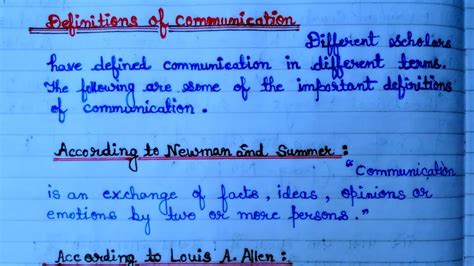 Definitions of Communication
Different scholars
have defined communication in different terms.
The following are some of the important definitions
of communication.
According to Newman and Summer:
"Communication
is an exchange of facts, ideas, opinions or
emotions by two or more persons."
According to Louis A. Allen: